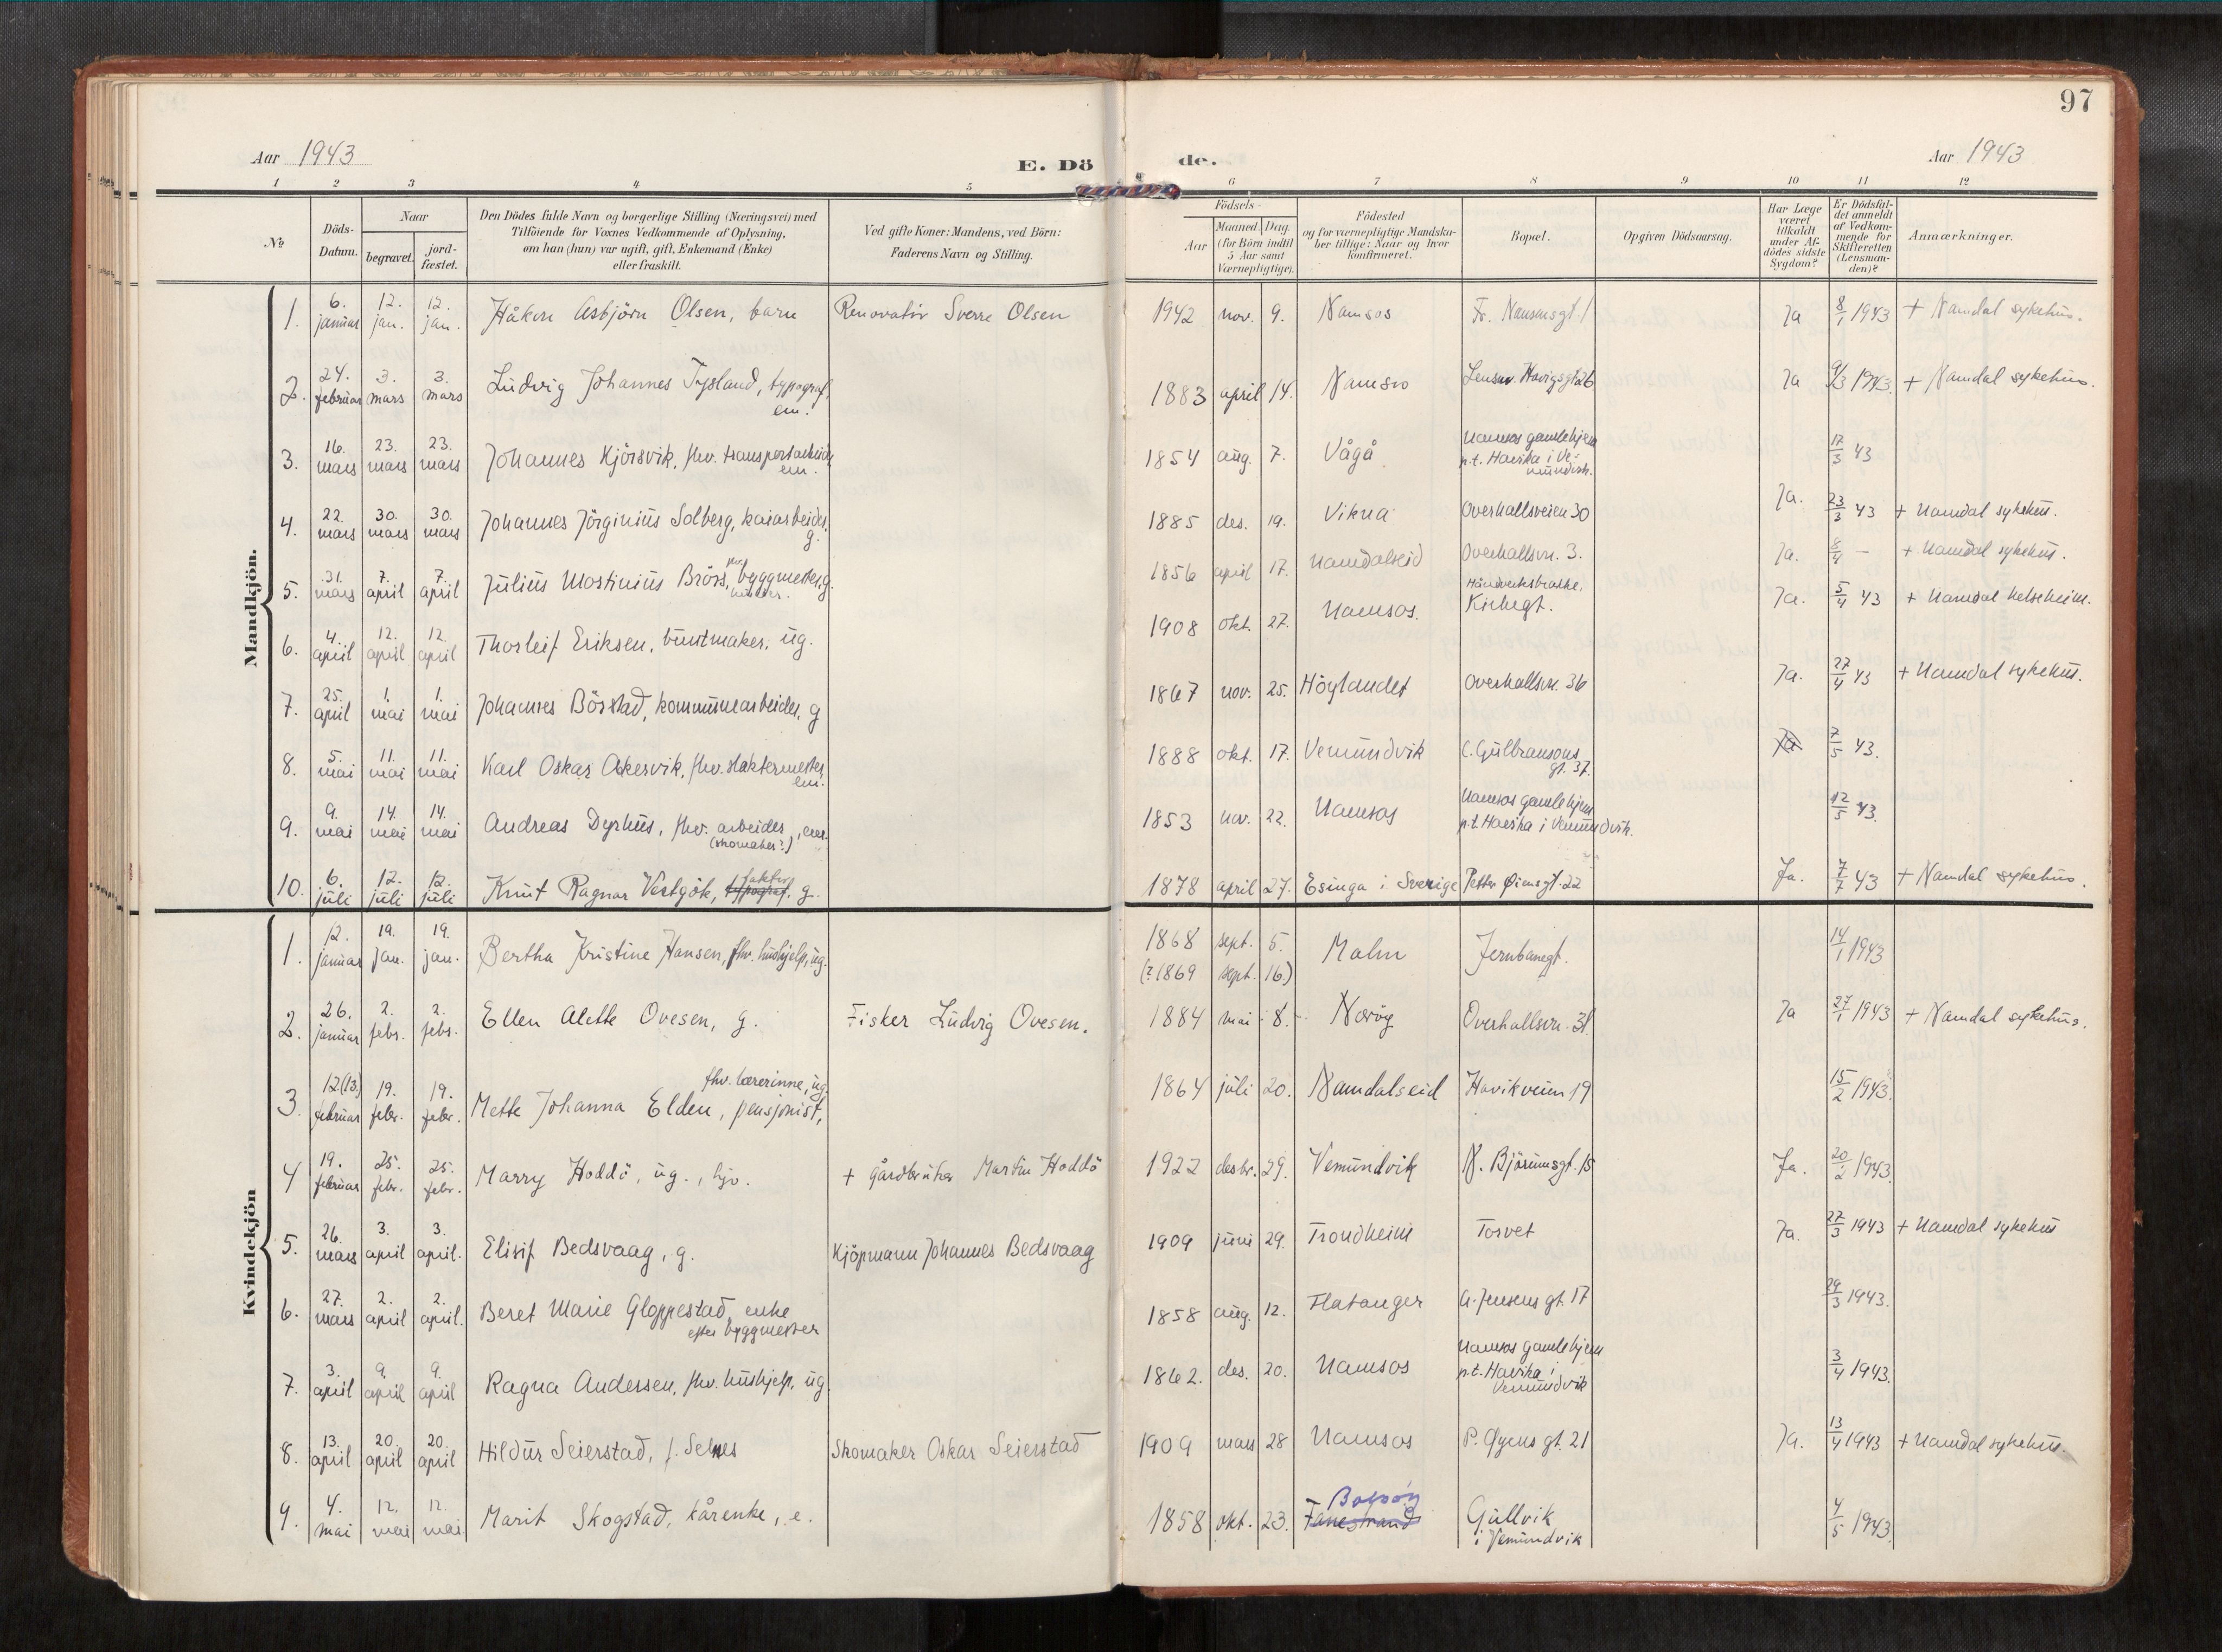 97
Aar 1943
E. Dö
de.
Aar 1943
1 2 3 4 5 6 7 8 9 10 11 12
№
Döds-Datum.
Naar
begravet.
jord-fæstet.
Den Dödes fulde Navn og borgerlige Stilling (Næringsvei) med
Tilföiende for Voxnes Vedkommende af Oplysning,
om han (hun) var ugift, gift, Enkemand (Enke)
eller fraskilt.
Ved gifte Koner: Mandens, ved Börn:
Faderens Navn og Stilling.
Födsels-
Aar
Maaned. Dag.
(for Börn indtil
5 Aar samt
Værnepligtige).
Födested
og for værnepligtige Mandska-
ber tillige: Naar og hvor
konfirmeret.
Bopæl.
Opgiven Dödsaarsag.
Har Læge
været
tilkaldt
under Af-
dödes sidste
Sygdom?
Er Dödsfal-
det anmeldt
af Vedkom-
mende for
Skifteretten
(Lensman-
den)?
Anmærkninger.
Mandkjön.
1. 6. januar 12. jan. 12. jan. Håkon Asbjörn Olsen, barn Renovatör Sverre Olsen 1942 nov. 9. Namsos Fr. Nansensgt. 1 Ja 8/1 1943 + Namdal sykehus.
2. 24. februar 3. mars 3. mars Ludvig Johannes Tysland, typograf, em. 1883 april 14. Namsos Lensm. Havigsgt 26 Ja 9/3 1943. + Namdal sykehus.
3. 16. mars 23. mars 23. mars Johannes Kjörsvik, fhv. transportarbeider em. 1854 aug. 7. Vågå Namsos gamlehjem p.t. Havika i Ve-mundvik. 17/3 43
4. 22. mars 30. mars 30. mars Johannes Jörginius Solberg, kaiarbeider, g. 1885 des. 19. Vikna Overhallsveien 30 Ja. 23/3 43 + Namdal sykehus.
5. 31. mars 7. april 7. april Julius Mostinius Brörs, fhv. byggmester, g. 1856 april 17. Namdalseid Overhallsvn. 3. Ja. 8/4 — + Namdal sykehus.
6. 4. april 12. april 12. april Thorleif Eriksen, buntmaker, ug. 1908 okt. 27. Namsos. Kirkegt. Ja. 5/4 43 + Namdal helseheim.
7. 25. april 1. mai 1. mai Johannes Börstad, kommunearbeider, g 1867 nov. 25. Höylandet Overhallsvn. 36 Ja. 27/4 43 + Namdal sykehus.
8. 5. mai 11. mai 11. mai Karl Oskar Akervik, fhv. slaktermester em. 1888 okt. 17. Vemundvik C. Gulbransons gt. 37. Ja 7/5 43.
9. 9. mai 14. mai 14. mai Andreas Dyrhus, fhv. arbeider, em. (skomaker?) 1853 nov. 22. Namsos Namsos gamlehjem p.t. Havika i Vemundvik. 12/5 43.
10. 6. juli 12. juli 12. juli Knut Ragnar Vestgöte, typograf, faktor g. 1878 april 27. Esinga i Sverige Petter Øiensgt. 22 Ja. 7/7 43 + Namdal sykehus.
Kvindekjön
1. 12. januar 19. jan. 19. jan. Bertha Kristine Hansen, fhv. hushjelp, ug. 1868 sept. 5. (? 1869 sept. 16.) Malm Jernbanegt. 14/1 1943
2. 26. januar 2. febr. 2. febr. Ellen Alette Ovesen, g. Fisker Ludvig Ovesen. 1884 mai 8. Næröy Overhallsvn. 31. Ja 27/1 1943 + Namdal sykehus.
3. 12.(13.) februar 19. febr. 19. febr. Mette Johanna Elden, pensjonist, fhv. lærerinne, ug 1864 juli 20. Namdalseid Havikveien 19 15/2 1943.
4 19. februar 25. febr. 25. febr. Marry Hoddö, ug., hjv. + gårdbruker Martin Hoddö 1922 desbr. 29. Vemundvik N. Björumsgt. 15 Ja. 20/2 1943.
5. 26. mars 3. april 3. april. Elisif Bedsvaag, g. Kjöpmann Johannes Bedsvaag 1909 juni 29. Trondheim Torvet Ja. 27/3 1943 + Namdal sykehus
6. 27. mars 2. april 2. april. Beret Marie Gloppestad, enke efter byggmester 1858 aug. 12. Flatanger A. Jensens gt. 17 29/3 1943.
7. 3. april 9. april 9. april Ragna Andersen, fhv. hushjelp, ug. 1862. des. 20. Namsos Namsos gamlehjem p.t. Havika i Vemundvik 3/4 1943.
8. 13. april 20. april 20. april Hildur Seierstad, f. Selnes Skomaker Oskar Seierstad 1909 mars 28 Namsos P. Øyens gt. 21 Ja. 13/4 1943 + Namdal sykehus.
9. 4. mai 12. mai 12. mai Marit Skogstad, kårenke, e. 1858 okt. 23. Fanestrand Bolsöy Gullvik i Vemundvik 4/5 1943.